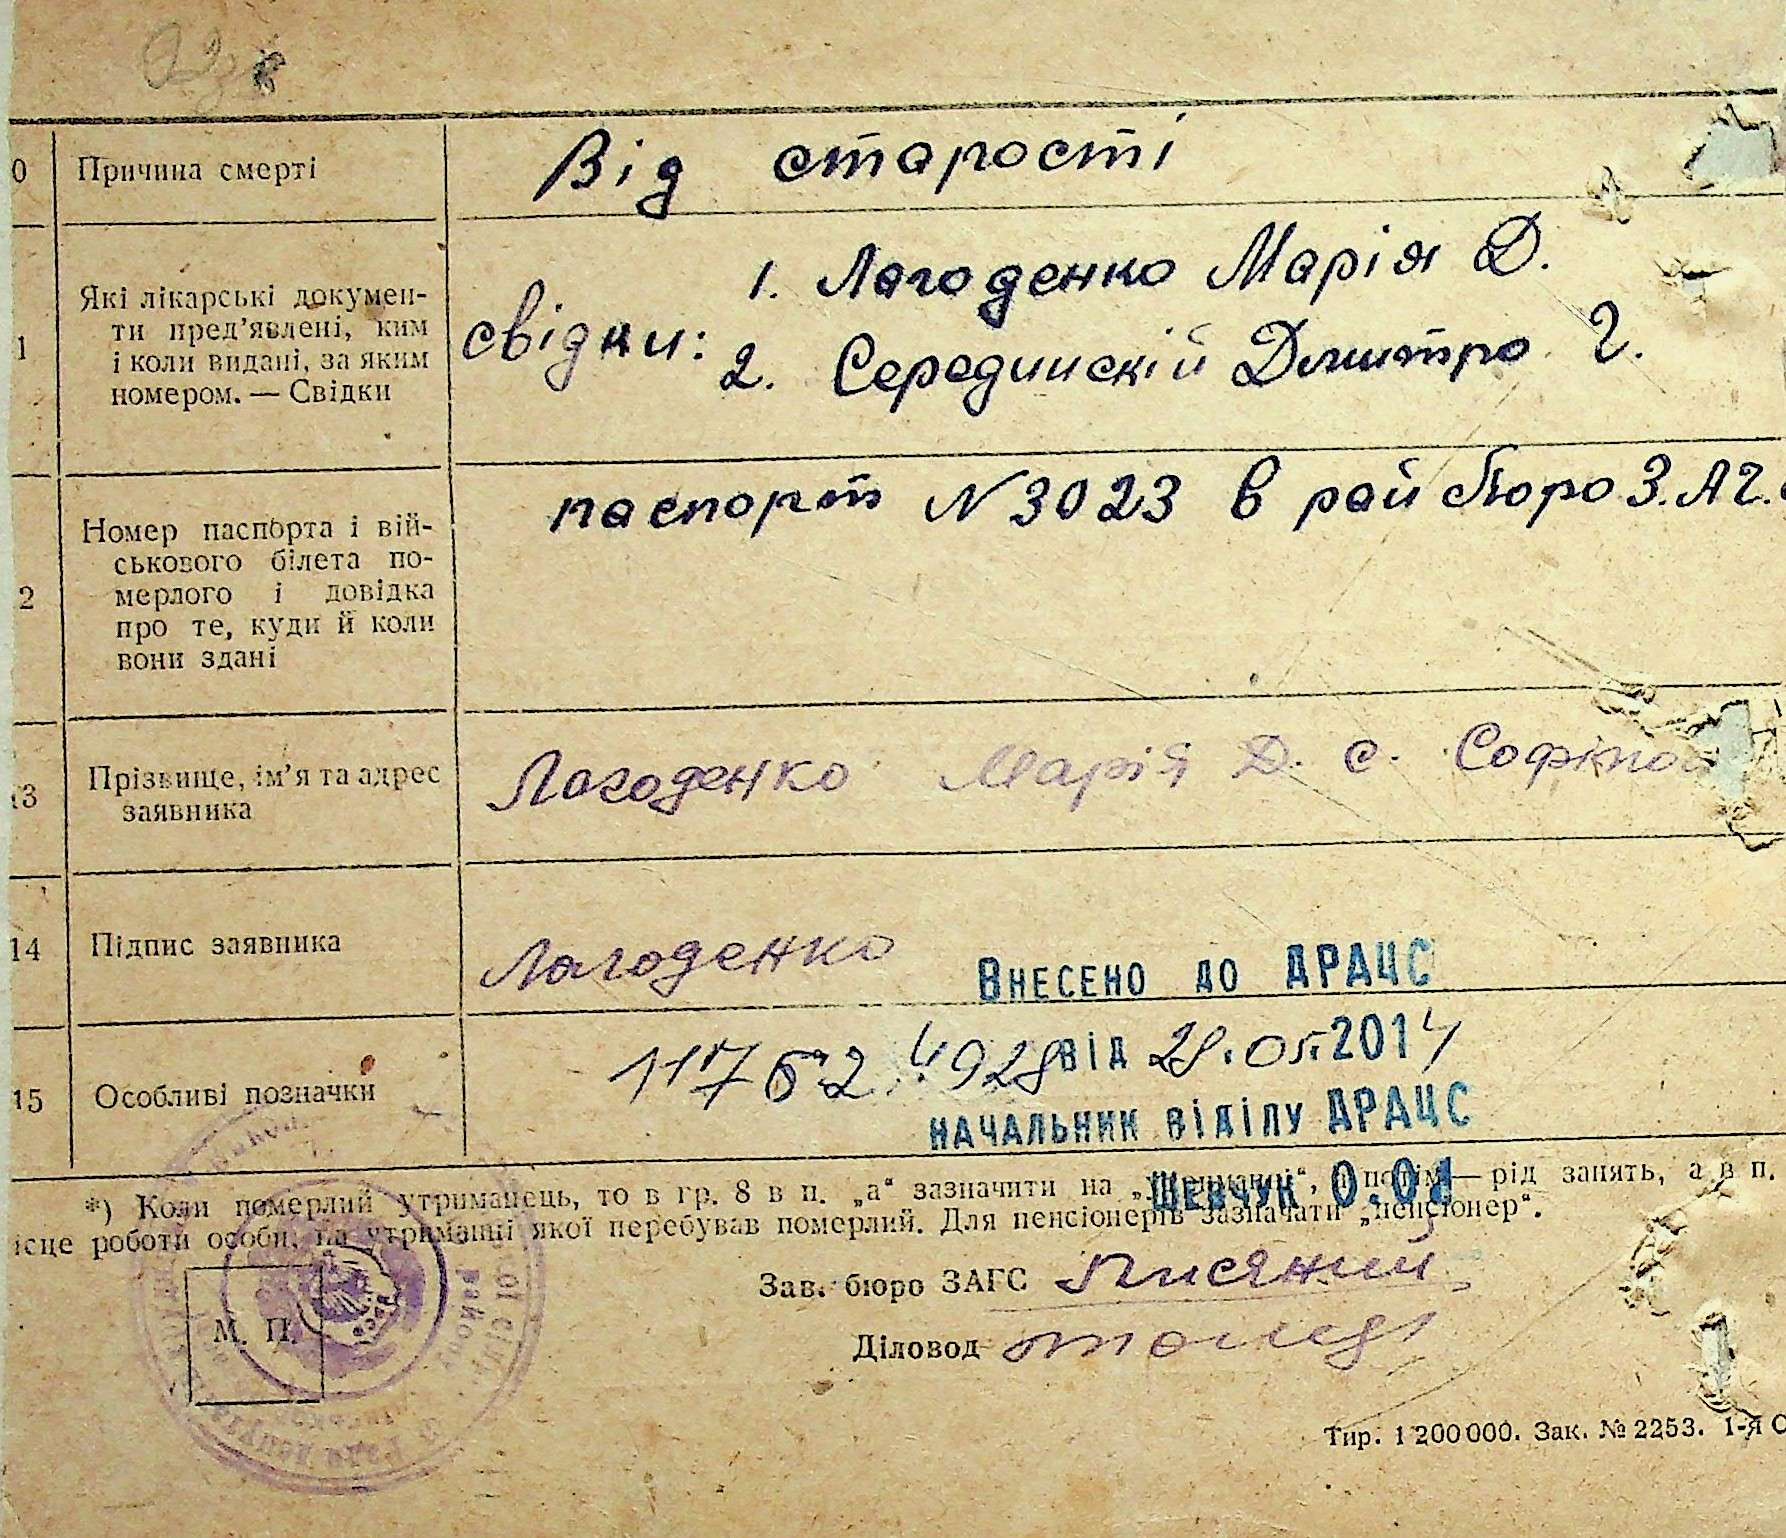 0 Причина смерті Від старості
1 Які лікарські докумен-
ти пред'явлені, ким
і коли видані, за яким
номером. — Свідки
свідки: 1. Лагоденко Марія Д.
2. Серединскій Дмитро Г.
2 Номер паспорта і вій-
ськового білета по-
мерлого і довідка
про те, куди й коли
вони здані
паспорт N 3023 в рай бюро З.А Г.
13 Прізвище, ім'я та адрес
заявника
Лагоденко Марія Д. с.
14 Підпис заявника Лагоденко
Внесено до ДРАЦС
15 Особливі позначки
від 28.05.2014
начальник відділу ДРАЦС
Шевчук О.О.
*) Коли померлий утриманець, то в гр. 8 в п. „а“ зазначити на — рід занять, а в п.
ісце роботи особи, на утриманні якої перебував померлий. Для пенсіонерів зазначати „пенсіонер“.
Зав. бюро ЗАГС
М. П.
Діловод
Тир. 1 200 000. Зак. № 2253. 1-я